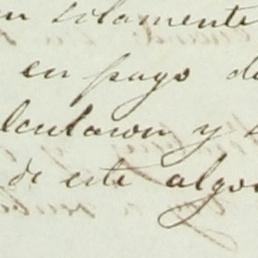 en solamente
en pago de
lcularon y
de este algo